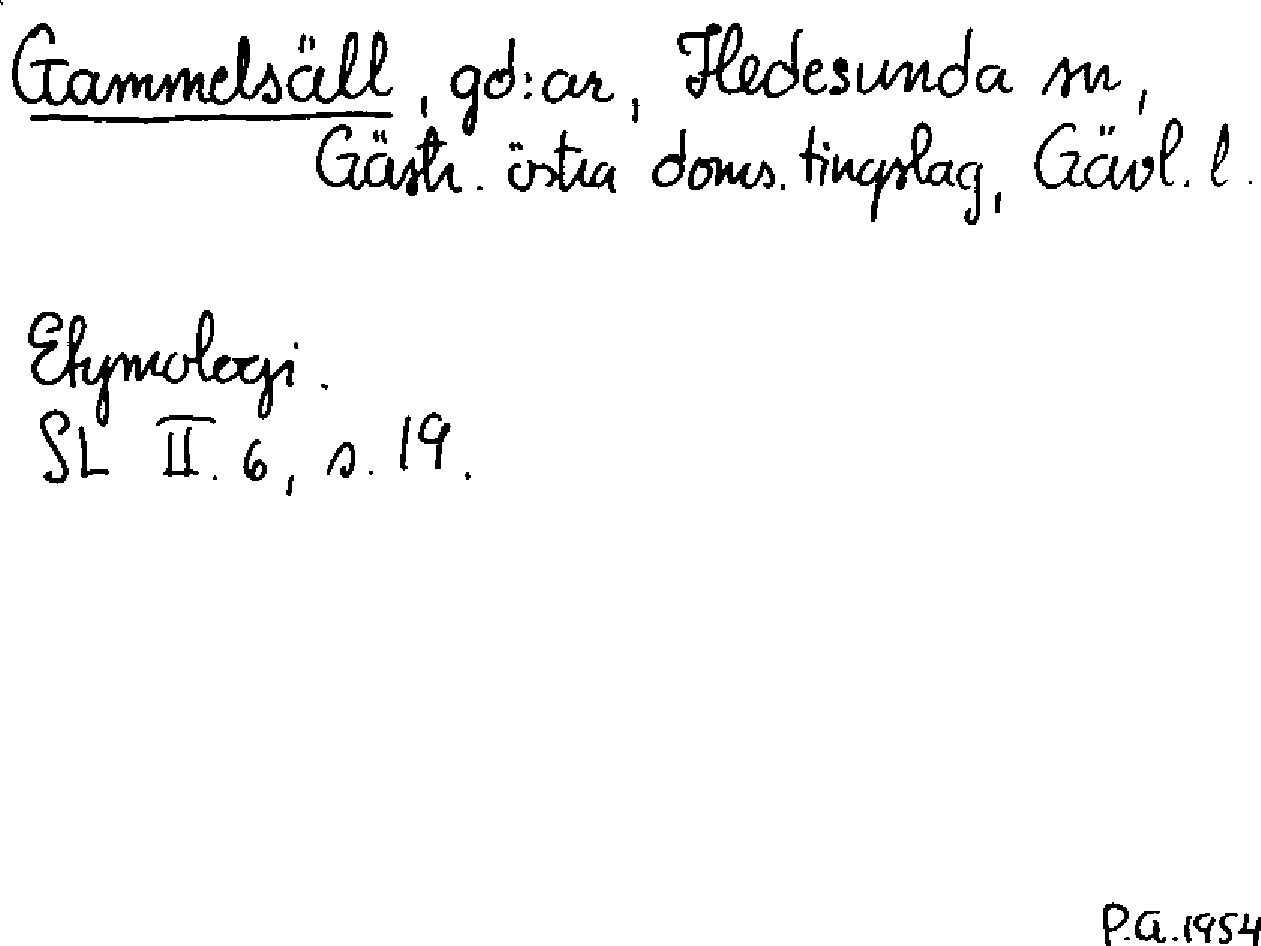 Gammelsäll, gd:ar, Hedesunda sn,
Gästr. östra doms. tingslag, Gävl. l.
Etymologi.
SL II. 6, s. 19.
P.G. 1954